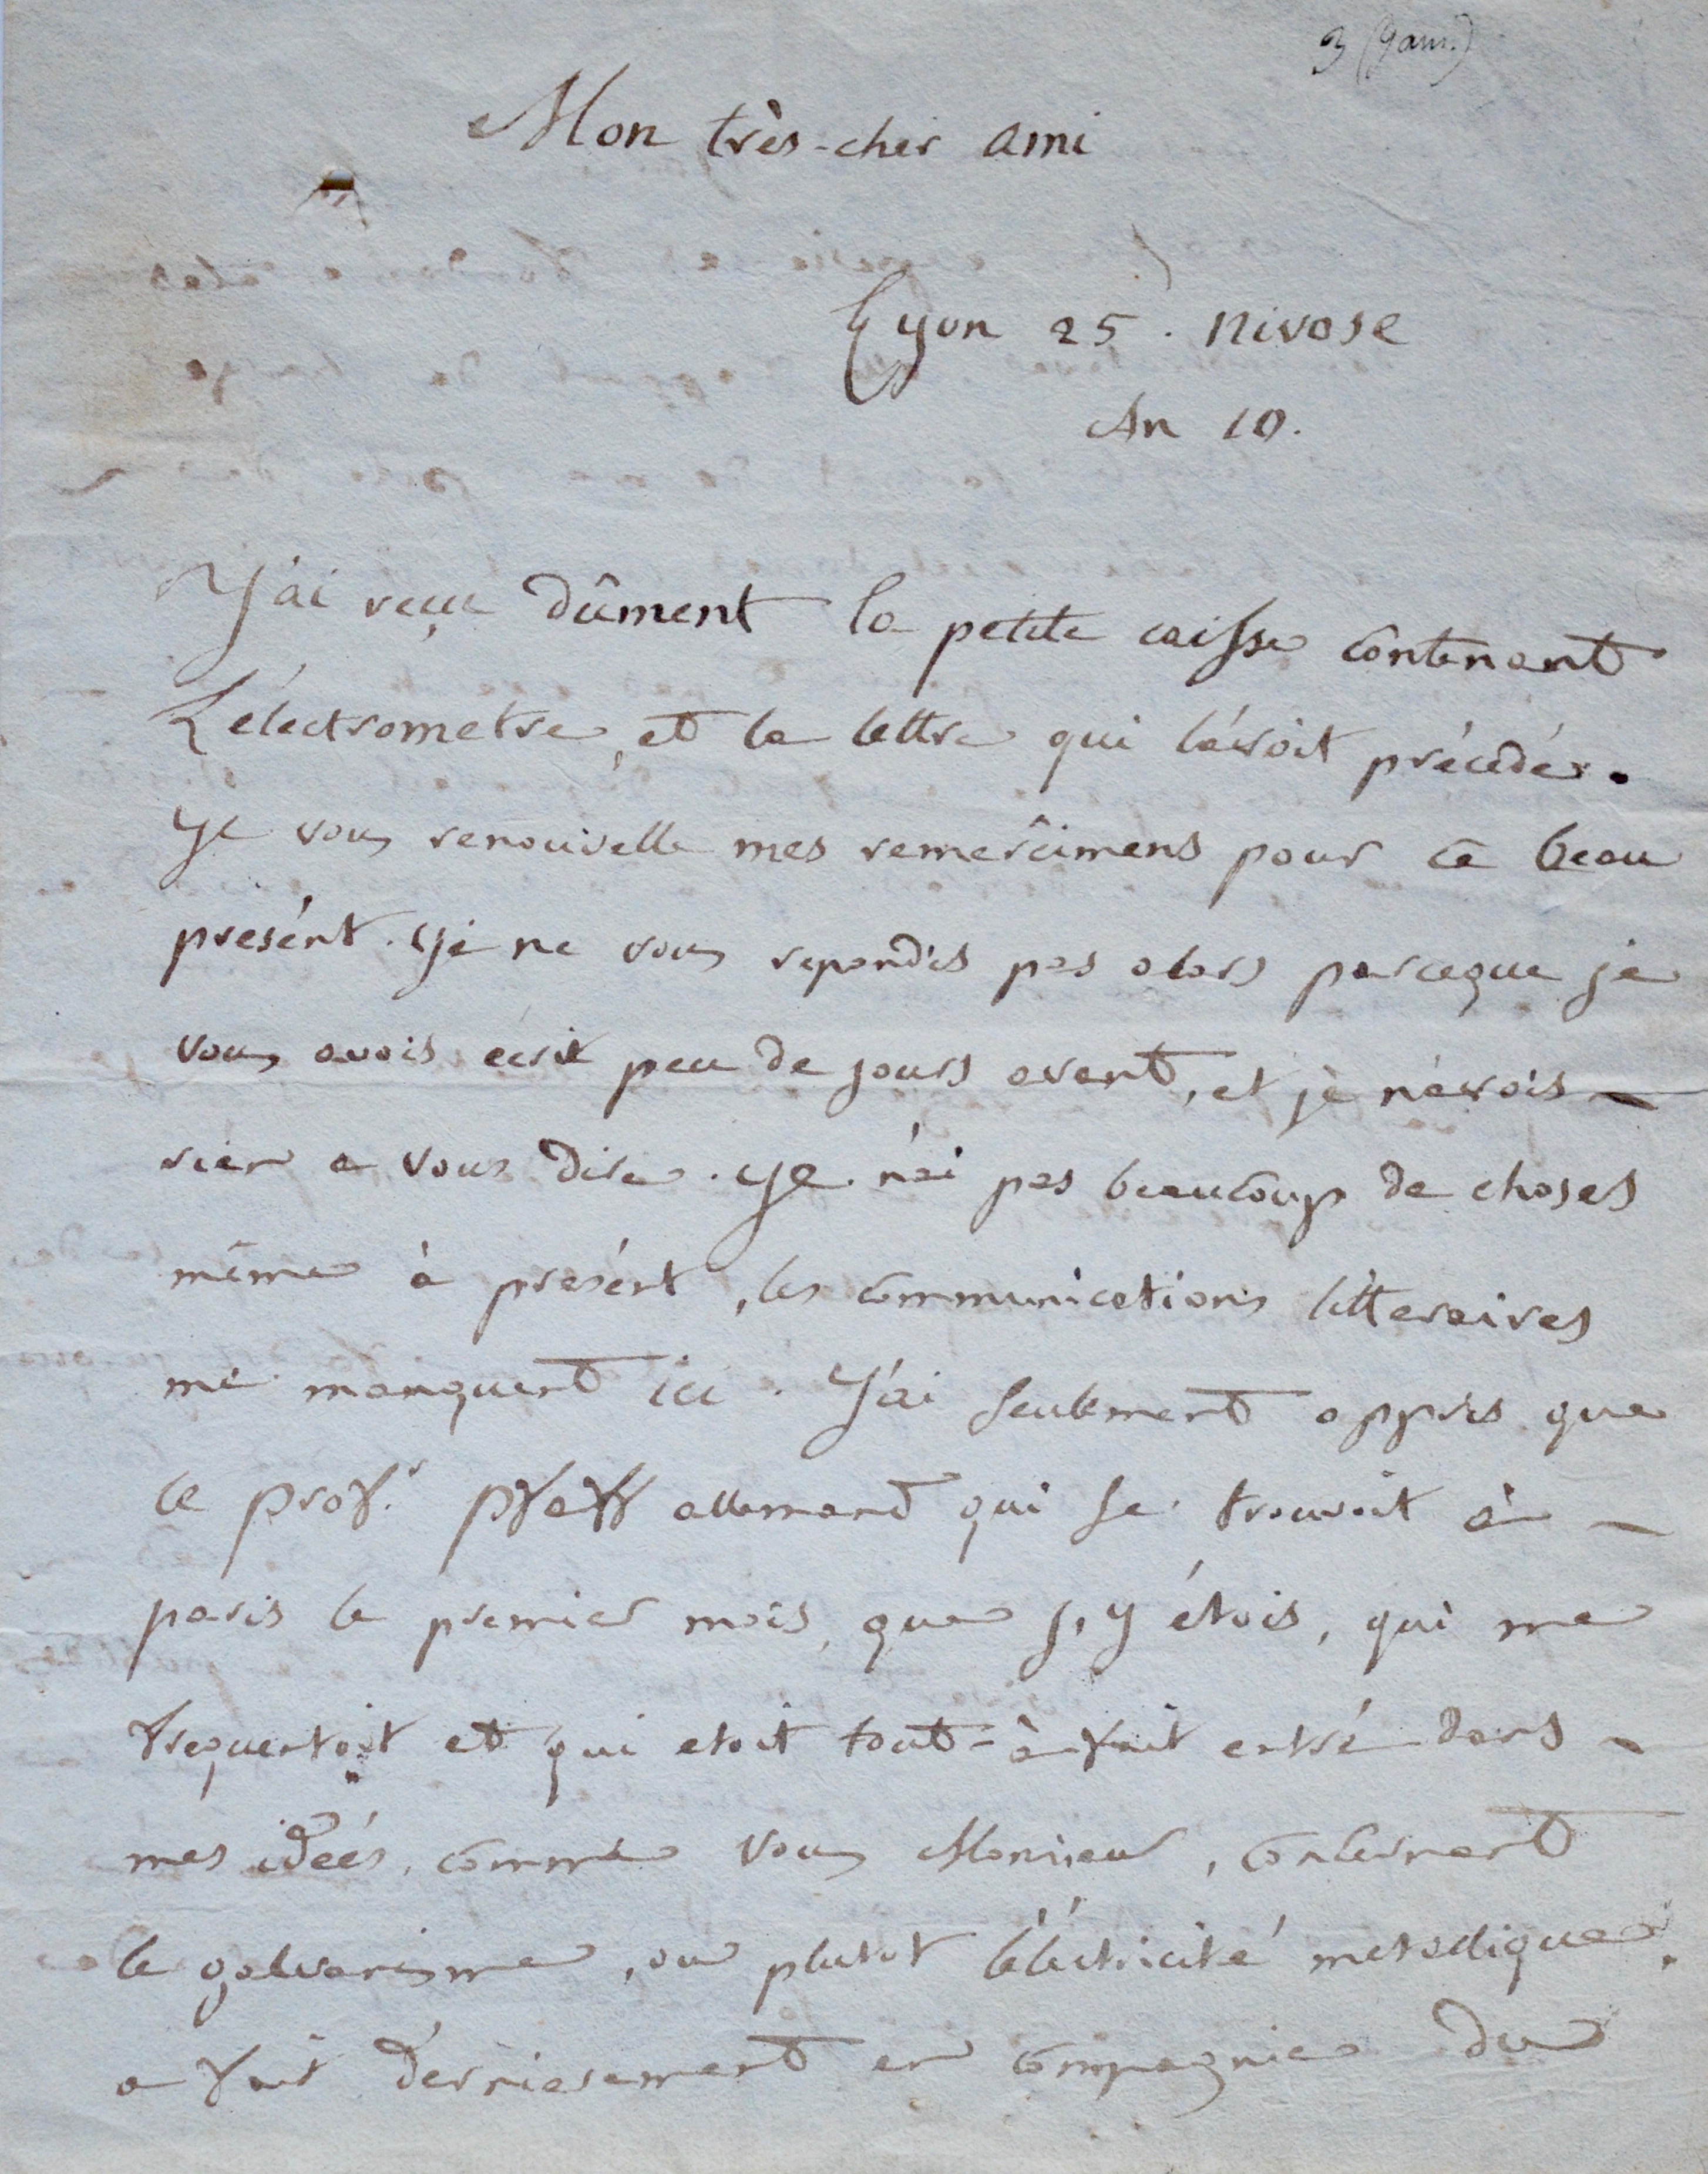 3 (Jan.)
Mon très-cher Ami
Lyon 25. Nivose
An 10.
J'ai reçu dûment la petite caisse contenant
L'électrometre, et la lettre qui l'avoit précédée.
Je vous renouvelle mes remercîmens pour ce beau
présént. Je ne vous repondis pas alors parceque je
vous avois écrit peu de jours avant, et je n'avois
rien a vous dire. Je n'ai pas beaucoup de choses
même à présént, les communications litteraires
me manquent ici. J'ai seulement appris que
le prof.r pfaff allemand qui se trouvoit à
paris le premier mois, que j'y étois, qui me
frequentoit et qui etoit tout-à-fait entré dans
mes idées, comme vous Monsieur, concernant
le galvanisme, ou plutot l'éléctricité metallique,
a fait dernierement en compagnie du